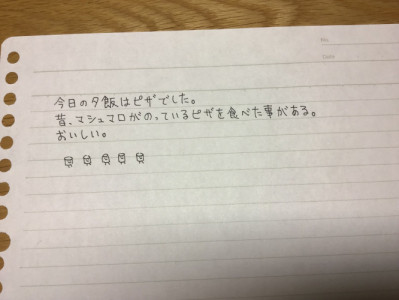 今日の夕飯はピザでした。
昔、マシュマロがのっているピザを食べた事がある。
おいしい。